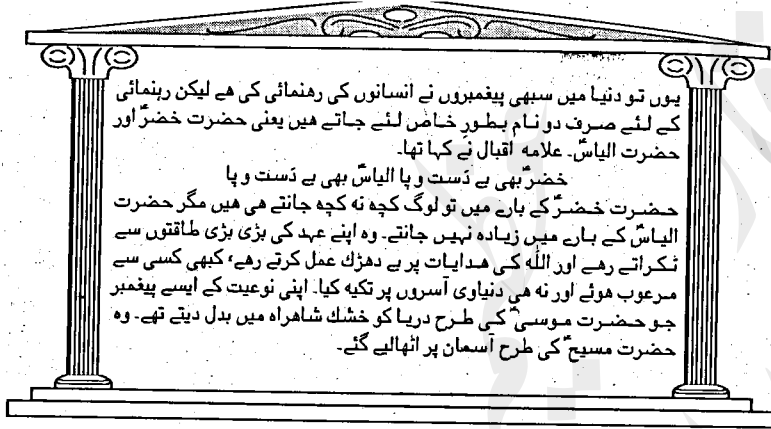 یوں تو دنیا میں سبھی پیغمبروں نے انسانوں کی رهنمائی کی هے لیکن رہنمائی
کے لئے صرف دو نام بطورِ خاص لئے جاتے هیں یعنی حضرت خضرؑ اور
حضرت الیاسؑ۔ علامه اقبال نے کہا تھا۔
خضرؑ بھی بے دَست و پا الیاسؑ بھی بے دَست و پا
حضرت خضرؑ کے بارے میں تو لوگ کچھ نه کچھ جانتے هی هیں مگر حضرت
الیاسؑ کے بارے میں زیادہ نہیں جانتے۔ وہ اپنے عہد کی بڑی بڑی طاقتوں سے
ٹکراتے رهے اور اللّٰه کی هدایات پر بے دهڑك عمل کرتے رهے، کبھی کسی سے
مرعوب هوئے اور نه هی دنیاوی آسروں پر تکیه کیا۔ اپنی نوعیت کے ایسے پیغمبر
جو حضرت موسیٰؑ کی طرح دریا کو خشك شاهراہ میں بدل دیتے تھے۔ وہ
حضرت مسیحؑ کی طرح آسمان پر اٹھالیے گئے۔